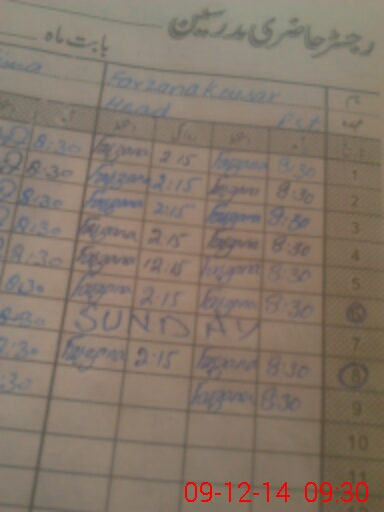 رجسٹر حاضری مدرسین
بابت ماہ
Farzana kousar
Head
8:30 Farzana 2:15 Farzana 8:30 1
8:30 Farzana 2:15 Farzana 8:30 2
8:30 Farzana 2:15 Farzana 8:30 3
8:30 Farzana 2:15 Farzana 8:30 4
8:30 Farzana 12:15 Farzana 8:30 5
8:30 Farzana 2:15 Farzana 8:30 6
8:30 SUNDAY 7
8:30 Farzana 2:15 Farzana 8:30 8
:30 Farzana 8:30 9
10
11
09-12-14 09:30